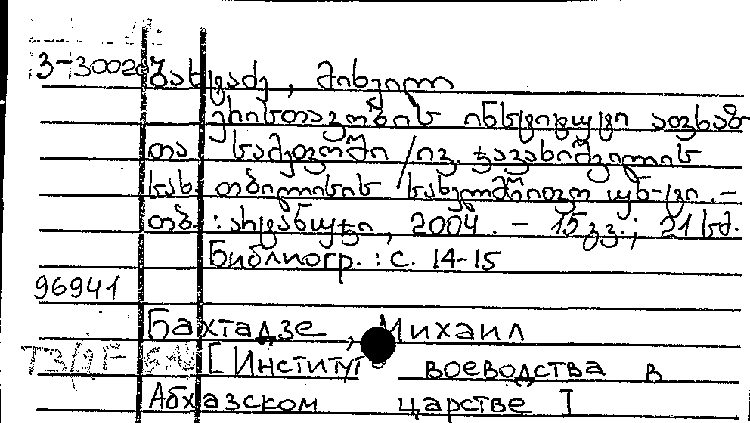 3-300207 ბახტაძე, მიხეილ
ერისთავობის ინსტიტუტი აფხაზ
თა სამეფოში / ივ. ჯავახიშვილის
სახ. თბილისის სახელმწიფო უნ-ტი. -
თბ. : არტანუჯი, 2004. - 15 გვ.; 21 სმ.
Библиогр. : с. 14-15
96941
Бахтадзе, Михаил
[Институт воеводства в
Абхазском царстве]